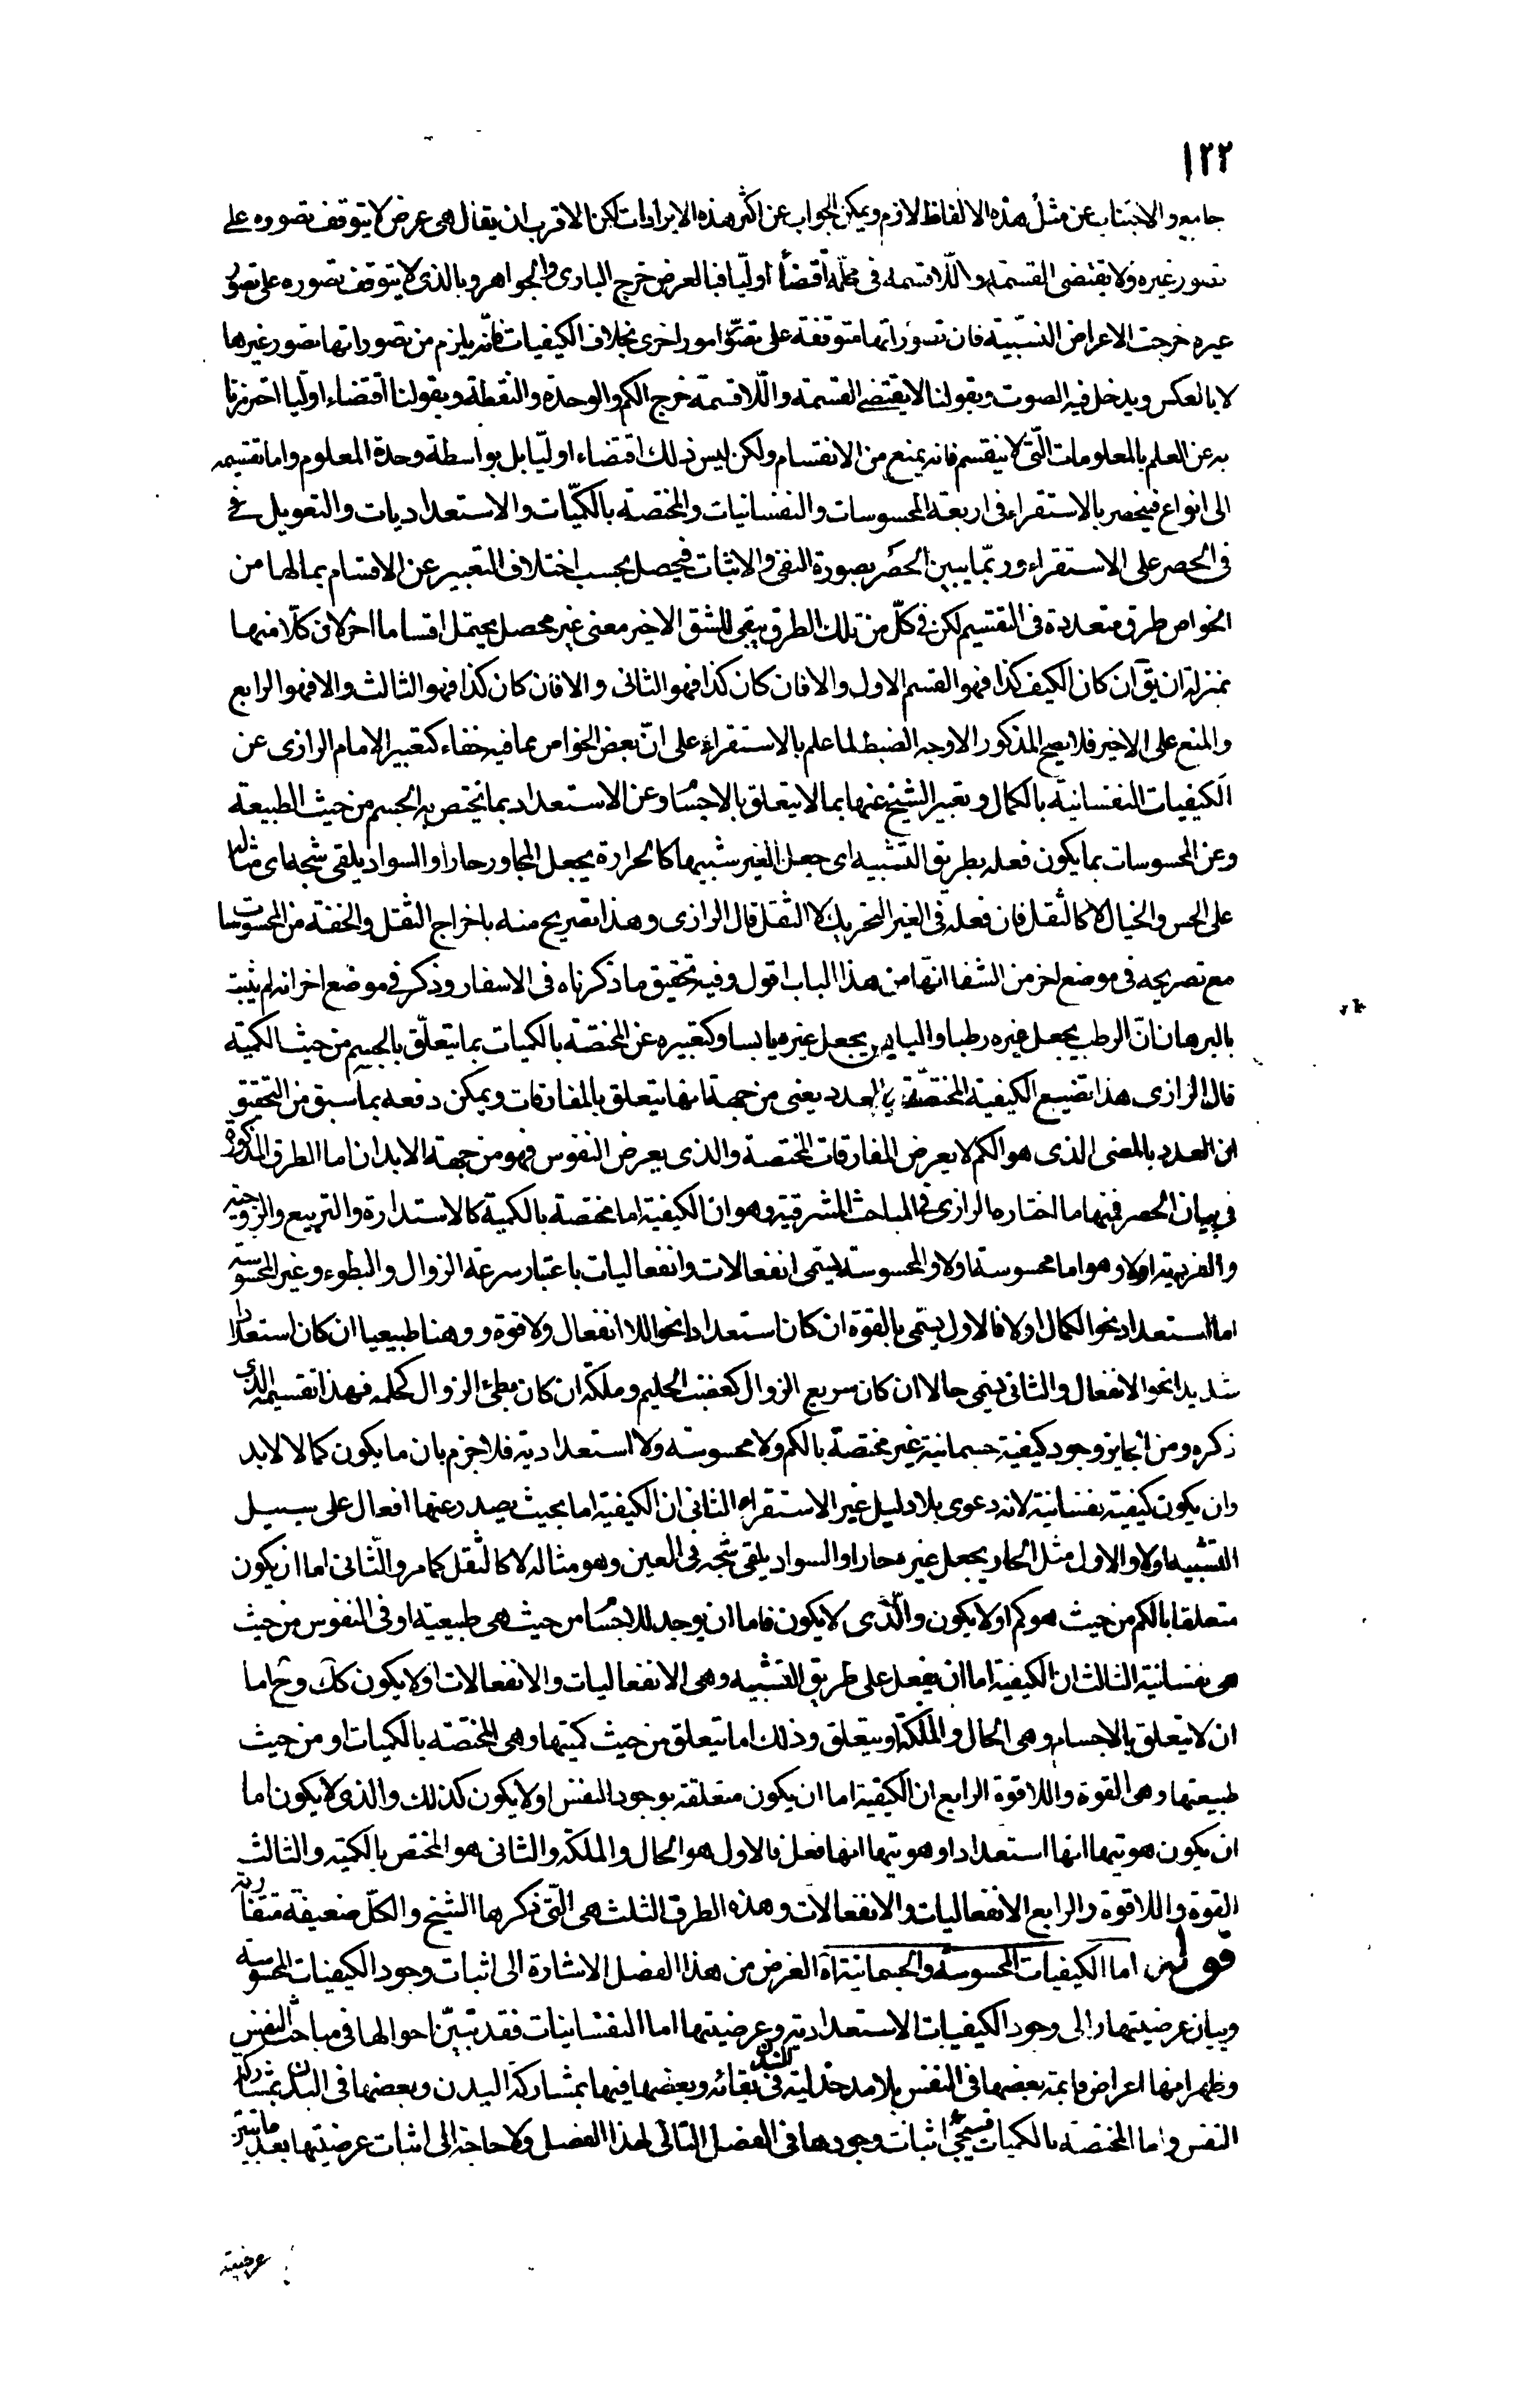 ١٢٢
جامع والاجتناب عن مثل هذه الالفاظ لازم ويمكن الجواب عن اكثر هذه الايرادات لكن الاقرب ان يقال هى عرض لا يتوقف تصوره على
تصور غيره ولا يقتضى القسمة واللاقسمة فى محله اقتضاء اوليا فبالعرض خرج البارى والجواهر وبالذى لا يتوقف تصوره على تصور
غيره خرجت الاعراض النسبية فان تصوراتها متوقفة على تصور امور اخرى بخلاف الكيفيات فانه يلزم من تصوراتها تصور غيرها
لا بالعكس ويدخل فيه الصوت وبقولنا لا يقتضى القسمة واللاقسمة خرج الكم والوحدة والنقطة وبقولنا اقتضاء اوليا احترزنا
به عن العلم بالمعلومات التى لا ينقسم فانه يمنع من الانقسام ولكن ليس ذلك اقتضاء اوليا بل بواسطة وحدة المعلوم واما تقسيمه
الى انواع فينحصر بالاستقراء فى اربعة المحسوسات والنفسانيات والمختصة بالكميات والاستعداديات والتعويل فى
فى الحصر على الاستقراء وربما يبين الحصر بصورة النفى والاثبات فيحصل بحسب اختلاف التعبير عن الاقسام بمالها من
الخواص طرق متعددة فى التقسيم لكن فى كل من تلك الطرق يبقى للشق الاخير معنى غير محصل يحتمل اقساما اخر لان كلا منها
بمنزلة ان يق ان كان الكيف كذا فهو القسم الاول والا فان كان كذا فهو الثانى والا فان كان كذا فهو الثالث والا فهو الرابع
والمنع على الاخير فلا يصح المذكور الا وجه الضبط لما علم بالاستقراء على ان بعض الخواص مما فيه خفاء كتعبير الامام الرازى عن
الكيفيات النفسانية بالكمال وتعبير الشيخ عنها بما لا يتعلق بالاجسام وعن الاستعداد بما يختص به الجسم من حيث الطبيعة
وعن المحسوسات بما يكون فعله بطريق التشبيه اى جعل الغير شبيها كالحرارة يجعل المجاور حارا والسواد يلقى شبحه اى مثاله
على الحس والخيال لا كالثقل فان فعله فى الغير التحريك لا الثقل قال الرازى وهذا تصريح منه باخراج الثقل والخفة من المحسوسات
مع تصريحه فى موضع اخر من الشفا انها من هذا الباب اقول وفيه تحقيق ما ذكرناه فى الاسفار وذكر فى موضع اخر انه لم يثبت
بالبرهان ان الرطب يجعل غيره رطبا واليابس يجعل غيره يابسا وكتعبيره عن المختصة بالكميات بما يتعلق بالجسم من حيث الكمية
قال الرازى هذا تضييع الكيفية المختصة بالعدد يعنى من جهة انها يتعلق بالمفارقات ويمكن دفعه بما سبق من التحقيق
ان العدد بالمعنى الذى هو الكم لا يعرض المفارقات المختصة والذى يعرض النفوس فهو من جهة الابدان اما الطرق المذكورة
فى بيان الحصر فمنها ما اختاره الرازى فى المباحث المشرقية وهو ان الكيفية اما مختصة بالكمية كالاستدارة والتربيع والزوجية
والفردية اولا وهو اما محسوسة اولا والمحسوسة يسمى انفعالات وانفعاليات باعتبار سرعة الزوال والبطوء وغير المحسوسة
اما استعداد نحو الكمال اولا فالاول يسمى بالقوة ان كان استعدادا نحو اللاانفعال ولاقوة ووهنا طبيعيا ان كان استعدادا
شديدا نحو الانفعال والثانى يسمى حالا ان كان سريع الزوال كغضب الحليم وملكة ان كان بطئ الزوال كحلمه فهذا تقسيمه الذى
ذكره ومن الجايز وجود كيفية جسمانية غير مختصة بالكم ولا محسوسة ولا استعدادية فلا جزم بان ما يكون كمالا لابد
وان يكون كيفية نفسانية لانه دعوى بلا دليل غير الاستقراء الثانى ان الكيفية اما بحيث يصدر عنها افعال على سبيل
التشبيه اولا والاول مثل الحار يجعل غيره حارا والسواد يلقى شبحه فى العين وهو مثاله لا كالثقل كما مر والثانى اما ان يكون
متعلقا بالكم من حيث هو كم او لا يكون والذى لا يكون فاما ان يوجد للاجسام من حيث هى طبيعية او فى النفوس من حيث
هى نفسانية الثالث ان الكيفية اما ان يفعل على طريق التشبيه وهى الانفعاليات والانفعالات اولا يكون كك وح اما
ان لا يتعلق بالاجسام وهى الحال والملكة او يتعلق وذلك اما يتعلق من حيث كميتها وهى المختصة بالكميات او من حيث
طبيعتها وهى القوة واللاقوة الرابع ان الكيفية اما ان يكون متعلقة بوجود النفس او لا يكون كذلك والذى لا يكون اما
ان يكون هويتها انها استعداد او هويتها انها فعل فالاول هو الحال والملكة والثانى هو المختص بالكمية والثالث
القوة واللاقوة والرابع الانفعاليات والانفعالات وهذه الطرق الثلث هى التى ذكرها الشيخ والكل ضعيفة متقاربة
قوله اما الكيفيات المحسوسة والجسمانية اه الغرض من هذا الفصل الاشارة الى اثبات وجود الكيفيات المحسوسة
وبيان عرضيتها والى وجود الكيفيات الاستعدادية وعرضيتها اما النفسانيات فقد تبين احوالها فى مباحث النفس
وظهر انها اعراض قايمة بعضها فى النفس بلا مدخلية للبدن فى بقائه وبعضها فيها بمشاركة البدن وبعضها فى البدن بمشاركة
النفس واما المختصة بالكميات فسيجئ اثبات وجودها فى الفصل التالى لهذا الفصل ولا حاجة الى اثبات عرضيتها بعد ما تبين
عرضية